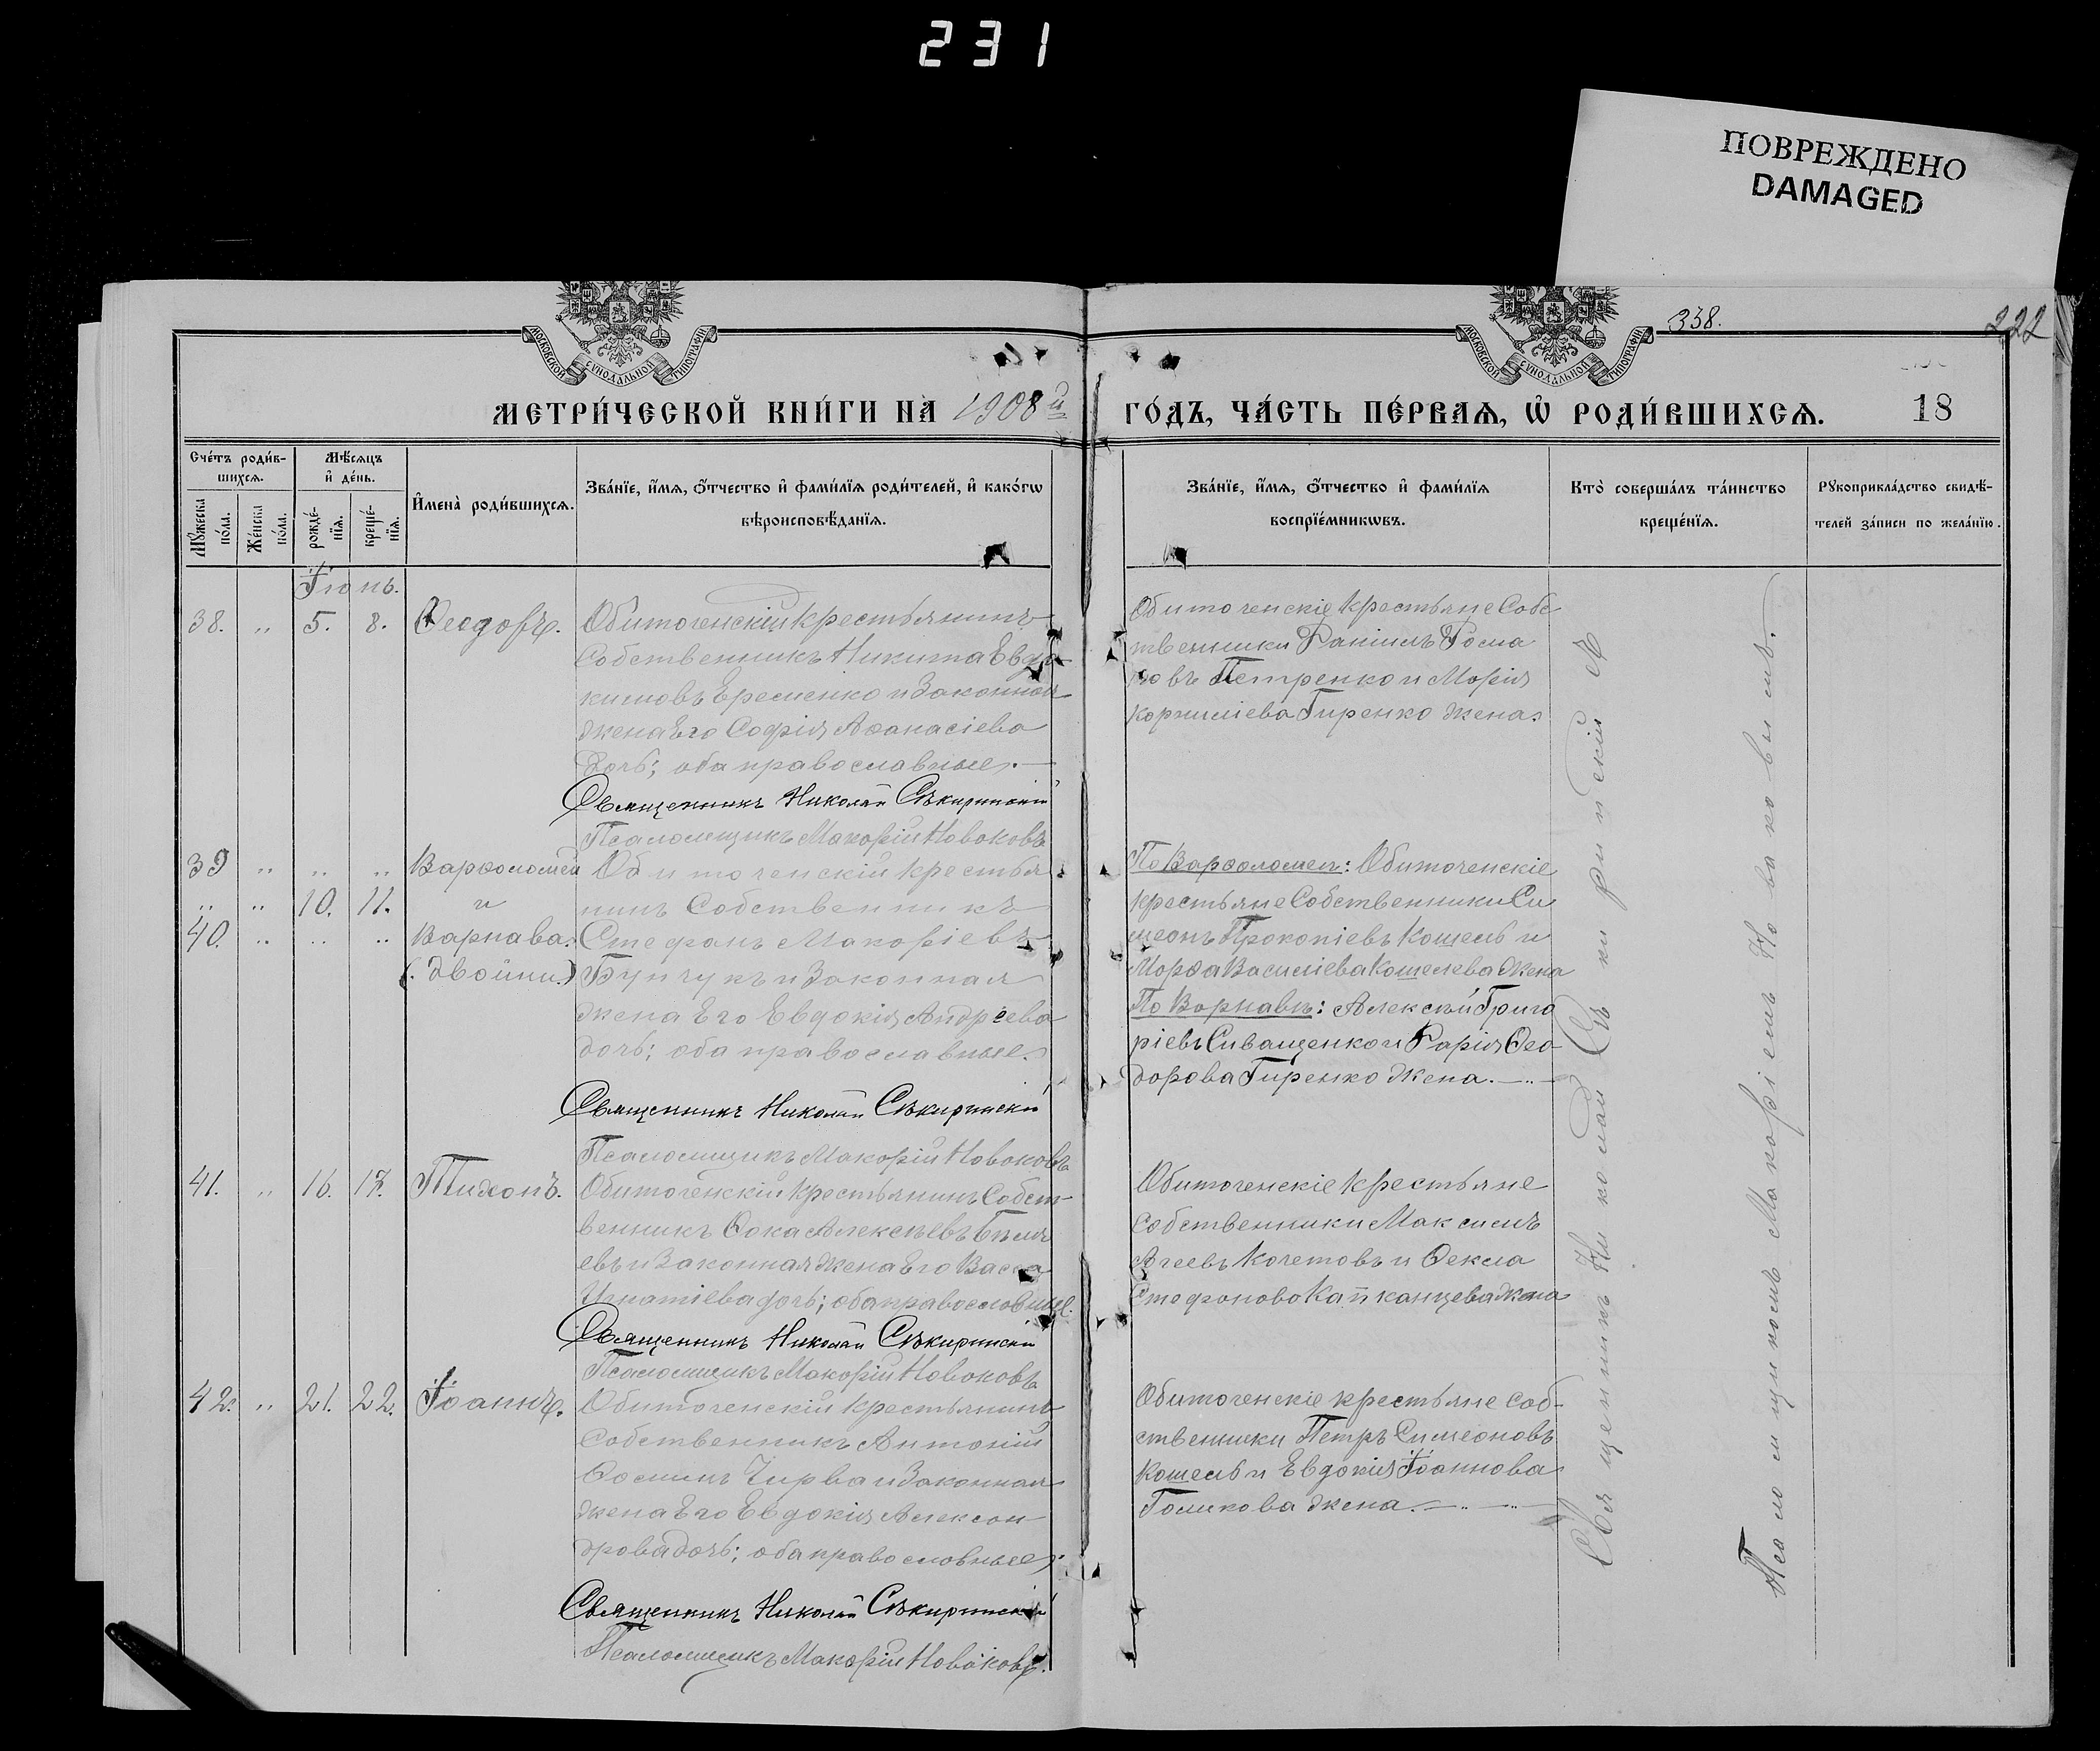 231
ПОВРЕЖДЕНО
DAMAGED
МОСКОВСКОЙ СѴНОДАЛЬНОЙ ТИПОГРАФІИ
МОСКОВСКОЙ СѴНОДАЛЬНОЙ ТИПОГРАФІИ
338.
222
МЕТРИ́ЧЕСКОЙ КНИ́ГИ НА 1908й
ГО́ДЪ, ЧА́СТЬ ПЕ́РВАѦ, Ѡ҆ РОДИ́ВШИХСѦ.
18
Сче́тъ роди́в-
шихсѧ.
Мꙋ́жеска по́ла.
Же́нска по́ла.
Мѣ́сѧцъ
и҆ де́нь.
рожде́-
нїѧ.
креще́-
нїѧ.
И҆мена̀ роди́вшихсѧ.
Зва́нїе, и҆́мѧ, ѻ҆́тчество и҆ фами́лїѧ роди́телей, и҆ како́гѡ
вѣроисповѣ́данїѧ.
Зва́нїе, и҆́мѧ, ѻ҆́тчество и҆ фами́лїѧ
воспрїе́мникѡвъ.
Кто̀ соверша́лъ та́инство
креще́нїѧ.
Рꙋкоприкла́дство свидѣ́-
телей за́писи по жела́нїю.
Іюнь.
38. „ 5. 8. Ѳеодоръ.
Обиточенскій крестьянинъ
Собственникъ Никита Евдо-
кимовъ Еременко и Законная
жена Его Софія Аѳанасіева
дочь; оба православные.
Священникъ Николай Сѣкиринскій
Псаломщикъ Макарій Новаковъ
Обиточенскіе крестьяне Собс
твенники Данiилъ Рома
новъ Петренко и Марія
Корниліева Гиренко жена
39 „ „ „ Варѳоломей
„ „ 10. 11. и
40. „ „ „ Варнава.
(двойни.)
Обиточенскій крестья
нинъ Собственникъ
Стефанъ Макаріевъ
Бунчукъ и Законная
жена Его Евдокія Андреева
дочь; оба православные.
Священникъ Николай Сѣкиринскій
Псаломщикъ Макарій Новаковъ
По Варѳоломею: Обиточенскіе
крестьяне Собственники Си
меонъ Прокопіевъ Кошель и
Марѳа Василіева Кошелева жена
По Варнавѣ: Алексѣй Григо
ріевъ Сиващенко и Дарія Ѳео-
дорова Гиренко жена.
41. „ 16. 17. Тихонъ.
Обиточенскій крестьянинъ Собст-
венникъ Ѳока Алексѣевъ Бѣля
евъ и Законная жена Его Васса
Игнатіева дочь; оба православные.
Священникъ Николай Сѣкиринскій
Псаломщикъ Макарій Новаковъ
Обиточенскіе крестьяне
Собственники Максимъ
Агеевъ Кочетовъ и Ѳекла
Стефанова Капканцева жена
42. „ 21. 22. Іоаннъ.
Обиточенскій крестьянинъ
Собственникъ Антоній
Ѳоминъ Чирва и Законная
жена Его Евдокія Алексан
дрова дочь; оба православные.
Священникъ Николай Сѣкиринскій
Псаломщикъ Макарій Новаковъ.
Обиточенскіе крестьяне соб-
ственники Петръ Симеоновъ
Кошель и Евдокія Іоаннова
Голикова жена.
Священникъ Николай Сѣкиринскій съ
Псаломщикомъ Макаріемъ Новаковымъ.